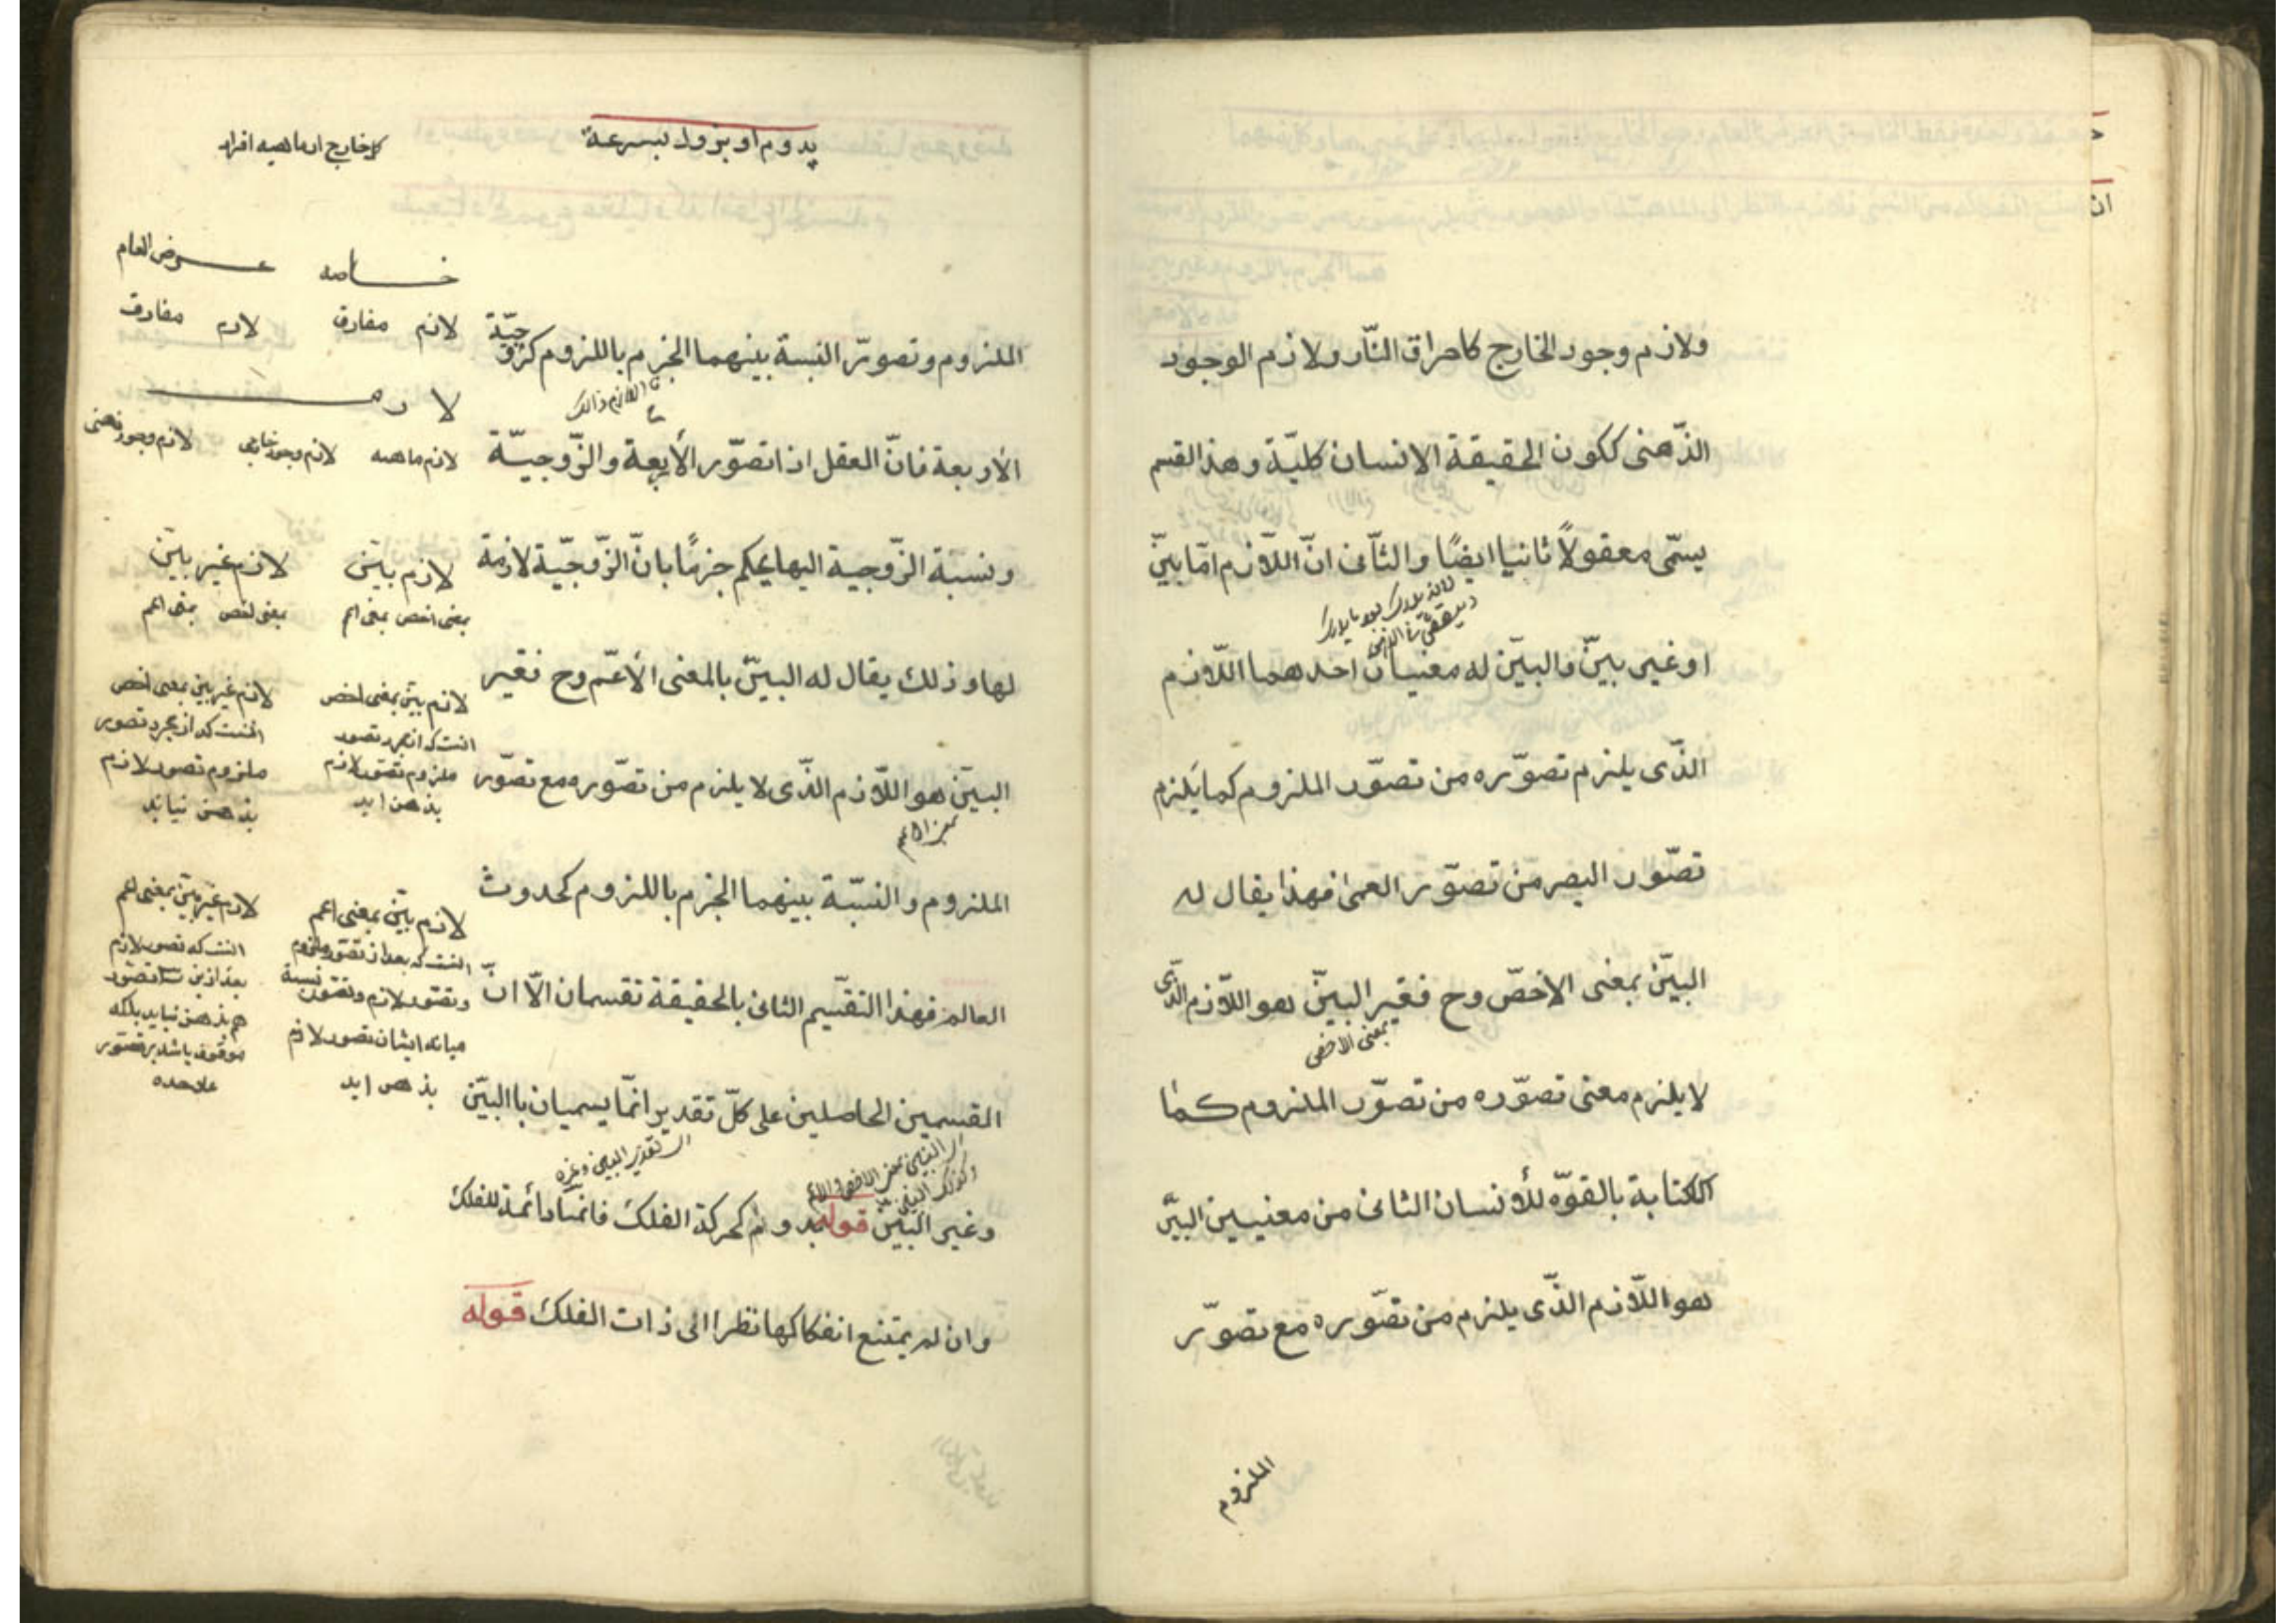 ولازم وجود الخارج كاحراق النّار ولازم الوجود
الذّهنى ككون الحقيقة الانسان كليّة وهذا القسم
يسمّى معقولاً ثانيا ايضًا والثّانى انّ اللّازم امّا بيّن
او غير بيّن والبيّن له معنيان احدهما اللّازم
الذّى يلزم تصوّره من تصوّر الملزوم كما يلزم
تصّور البصر من تصوّر العمى فهذا يقال له
البيّن بمعنى الاخصّ وح فغير البيّن هو اللّازم الذّى
بمعنى الاخص
لا يلزم معنى تصوّره من تصوّر الملزوم كما
الكتابة بالقوّه للأنسان الثانى من معنيين البيّن
هو اللّازم الذّى يلزم من تصّوره مع تصوّر
الملزوم
يدوم او يزول بسرعة
الملزوم وتصورّ النسبة بينهما الجزم باللزوم كزوجيّة
الأربعة فانّ العقل اذا تصوّر الأربعة والزّوجيّة
ونسبة الزّوجية اليها يحكم جزمًا بانّ الزّوجيّة لازمة
لها وذلك يقال له البيّن بالمعنى الأعمّ وح فغير
البيّن هو اللّازم الذّى لا يلزم من تصّوره مع تصّور
بمعنى الاعم
الملزوم والنسّبة بينهما الجزم باللزوم كحدوث
العالم فهذا التقسّيم الثانى بالحقيقة تقسمان الّا انّ
القسمين الحاصلين على كلّ تقدير انّما يسميان باالبيّن
وغير البيّن قوله يدوم كحركة الفلك فانها دائمة للفلك
وان لم يمتنع انفكاكها نظرا الى ذات الفلك قوله
كل خارج از ماهيه افراد
خاصه عرض العام
لازم مفارق لازم مفارق
لازم
لازم ماهيه لازم وجود خارجى لازم وجود ذهنى
لازم بيّن لازم غير بيّن
بمعنى اخص بمعنى اعم بمعنى اخص بمعنى اعم
لازم بيّن بمعنى اخص
انست كه از مجرد تصور
ملزوم تصوّر لازم
بذهن ايد
لازم غير بيّن بمعنى اخص
انست كه از مجرد تصور
ملزوم تصور لازم
بذهن نيايد
لازم بيّن بمعنى اعم
انست كه بعد از تصوّر ملزوم
وتصّور لازم وتصّور نسبة
ميانه ايشان تصور لازم
بذهن ايد
لازم غير بيّن بمعنى اعم
انست كه تصور لازم
بعد از تصوّر
هم بذهن نيايد بلكه
موقوف باشد بر تصور
علاحده